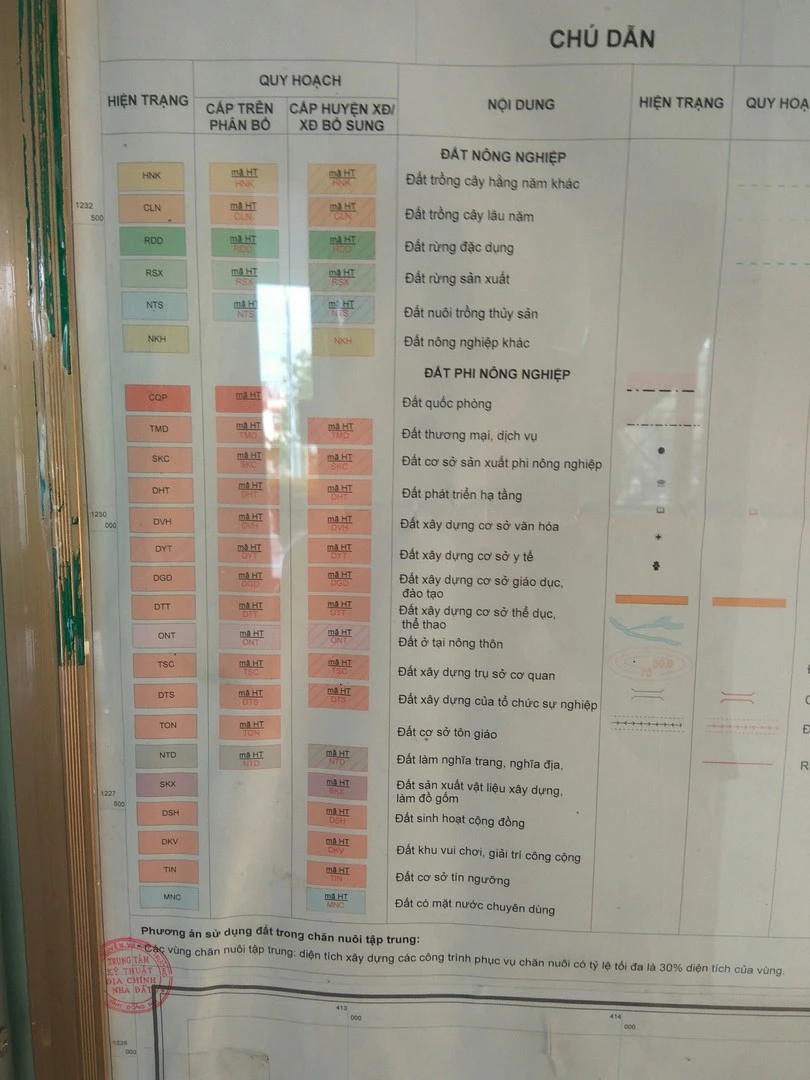 CHÚ DẪN
HIỆN TRẠNG
QUY HOẠCH
CẤP TRÊN
PHÂN BỔ
CẤP HUYỆN XĐ/
XĐ BỔ SUNG
NỘI DUNG
HIỆN TRẠNG
QUY HOẠ
ĐẤT NÔNG NGHIỆP
HNK mã HT HNK mã HT HNK Đất trồng cây hằng năm khác
1232
500
CLN mã HT CLN mã HT CLN Đất trồng cây lâu năm
RDD mã HT RDD mã HT RDD Đất rừng đặc dụng
RSX mã HT RSX mã HT RSX Đất rừng sản xuất
NTS mã HT NTS mã HT NTS Đất nuôi trồng thủy sản
NKH NKH Đất nông nghiệp khác
ĐẤT PHI NÔNG NGHIỆP
CQP mã HT Đất quốc phòng
TMD mã HT TMD mã HT TMD Đất thương mại, dịch vụ
SKC mã HT SKC mã HT SKC Đất cơ sở sản xuất phi nông nghiệp
DHT mã HT DHT mã HT DHT Đất phát triển hạ tầng
1230
000
DVH mã HT DVH mã HT DVH Đất xây dựng cơ sở văn hóa
DYT mã HT DYT mã HT DYT Đất xây dựng cơ sở y tế
DGD mã HT DGD mã HT DGD Đất xây dựng cơ sở giáo dục,
đào tạo
DTT mã HT DTT mã HT DTT Đất xây dựng cơ sở thể dục,
thể thao
ONT mã HT ONT mã HT ONT Đất ở tại nông thôn
TSC mã HT TSC mã HT TSC Đất xây dựng trụ sở cơ quan
DTS mã HT DTS mã HT DTS Đất xây dựng của tổ chức sự nghiệp
TON mã HT TON Đất cơ sở tôn giáo
NTD mã HT NTD mã HT NTD Đất làm nghĩa trang, nghĩa địa,
1227
500
SKX mã HT SKX Đất sản xuất vật liệu xây dựng,
làm đồ gốm
DSH mã HT DSH Đất sinh hoạt cộng đồng
DKV mã HT DKV Đất khu vui chơi, giải trí công cộng
TIN mã HT TIN Đất cơ sở tín ngưỡng
MNC mã HT MNC Đất có mặt nước chuyên dùng
Phương án sử dụng đất trong chăn nuôi tập trung:
- Các vùng chăn nuôi tập trung: diện tích xây dựng các công trình phục vụ chăn nuôi có tỷ lệ tối đa là 30% diện tích của vùng.
TRUNG TÂM
KỸ THUẬT
ĐỊA CHÍNH
NHÀ ĐẤT
413
000
414
000
1226
000